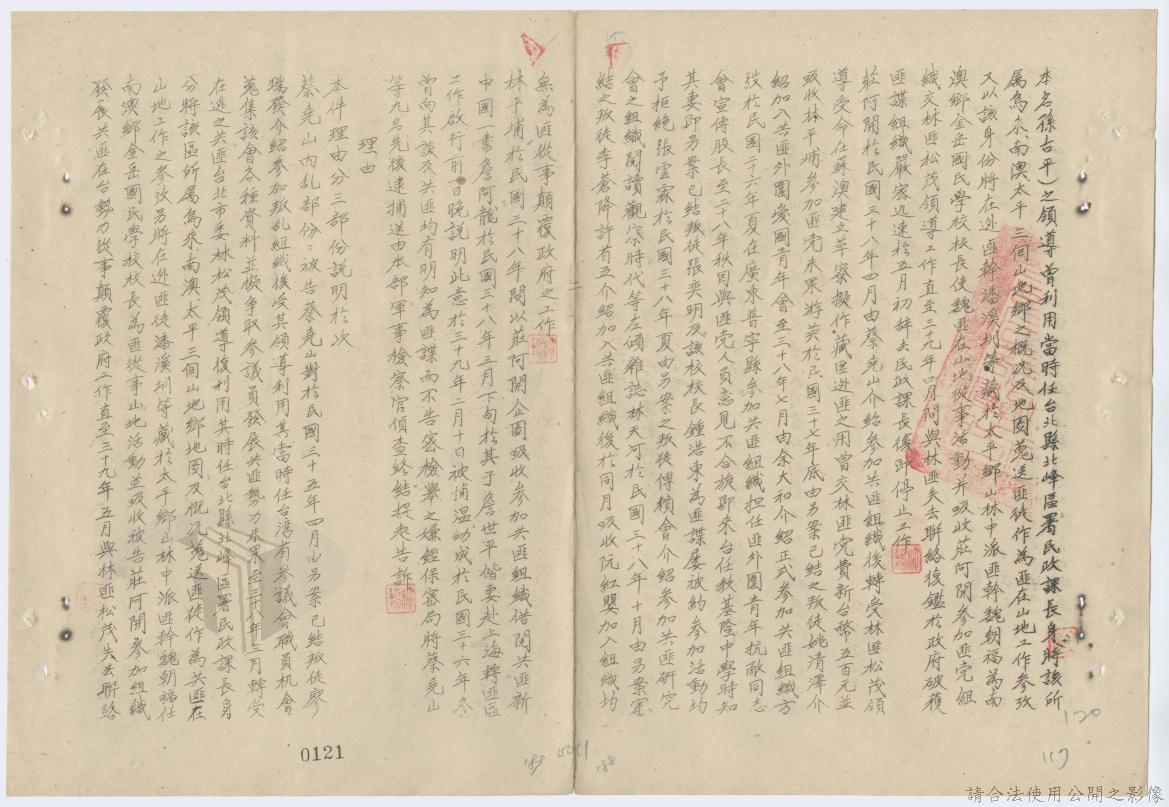 本名孫古平）之領導曾利用當時任台北縣北峰區署民政課長身將該所
屬烏來南澳太平三個山地鄉之概況及地圖蒐送匪徒作為匪在山地工作參攷
又以該身份將在逃匪幹潘溪圳等藏於太平鄉山林中派匪幹魏朝福為南
澳鄉金岳國民學校校長使魏匪在山地從事活動并吸收莊阿開參加匪党組
織交林匪松茂領導工作直至三九年四月間與林匪失去聯絡復鑑於政府破獲
匪諜組織嚴密迅速於五月初辞去民政課長後即停止工作
莊阿開於民國三十八年四月由蔡堯山介紹參加共匪組織後轉受林匪松茂領
導受命在蘇澳建立草寮擬作藏匿逃匪之用曾交林匪党費新台幣五百元並
吸收林平埔參加匪党未果游英於民國三十七年底由另案已結之叛徒姚清澤介
紹加入共匪外圍愛國青年會至三十八年七月由余大和介紹正式參加共匪組織方
弢於民國二十六年夏在廣東普寧縣參加共匪組織担任匪外圍青年抗敵同志
會宣傳股長至二十八年秋因與匪党人員意見不合旋即來台任教基隆中學時知
其妻邱另案已結叛徒張奕明及該校校長鍾浩東為匪諜屢被約參加活動均
予拒絕張雲霖於民國三十八年夏由另案之叛徒傅賴會介紹參加共匪研究
會之組織閱讀觀察時代等左傾雜誌林天河於民國三十八年十月由另案寔
結之叛徒李蒼降許省五介紹加入共匪組織後於同月吸收阮紅嬰加入組織均
無為匪從事顛覆政府之工作
林平埔於民國三十八年間以莊阿開企圖吸收參加共匪組織借閱共匪新
中國一書詹阿龍於民國三十八年三月下旬於其子詹世平偕妻赴上海轉匪區
工作啟行前一日晚說明此意於三十九年二月十日被捕溫幼成於民國三十六年冬
曾向其談及共匪均有明知為匪諜而不告密檢舉之嫌經保密局將蔡堯山
等九名先後逮捕送由本部軍事檢察官偵查終結提起告訴
理由
本件理由分三部份說明於次
蔡堯山內乱部份：被告蔡堯山對於民國三十五年四月由另案已結叛徒廖
瑞發介紹參加叛乱組織後受其領導利用其當時任台湾省參議會職員机會
蒐集該會各種資料並擬争取參議員發展共匪勢力未果至三十八年三月轉受
在逃之共匪台北市委林松茂領導復利用其時任台北縣北峰區署民政課長身
分將該區所屬烏來南澳太平三個山地鄉地圖及概況蒐送匪徒作為共匪在
山地工作之參攷另將在逃匪徒潘溪圳等藏於太平鄉山林中派匪幹魏朝福任
南澳鄉金岳國民學校校長為匪從事山地活動並吸收被告莊阿開參加組織
發展共匪在台勢力從事顛覆政府工作直至三十九年五月與林匪松茂失去聯絡
120
117
188
189
0121
請合法使用公開之影像